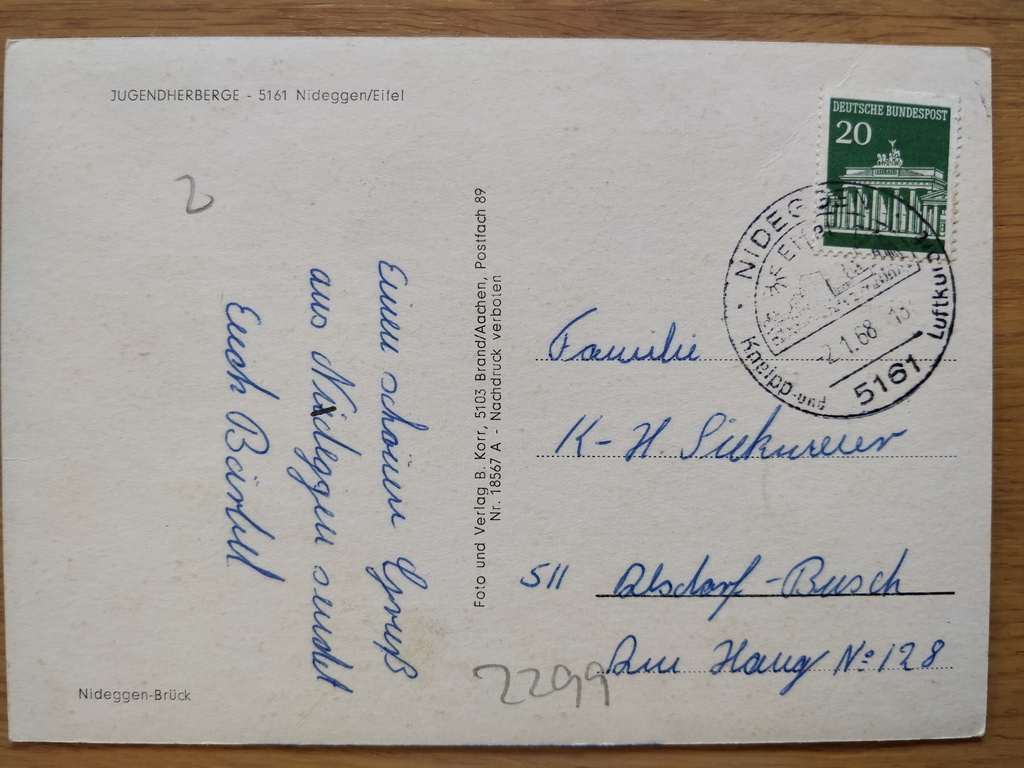 JUGENDHERBERGE - 5161 Nideggen/Eifel
2
Einen schönen Gruß
aus Nideggen sendet
Euch Bärbel
Nideggen-Brück
Foto und Verlag B. Korr, 5103 Brand/Aachen, Postfach 89
Nr. 18567 A - Nachdruck verboten
DEUTSCHE BUNDESPOST
20
NIDEGGEN
EIFEL
-2.1.68
5161
Kneipp-und
Luftkurort
Familie
K-H. Siekmeier
511 Alsdorf-Busch
Am Hang No 128
2299